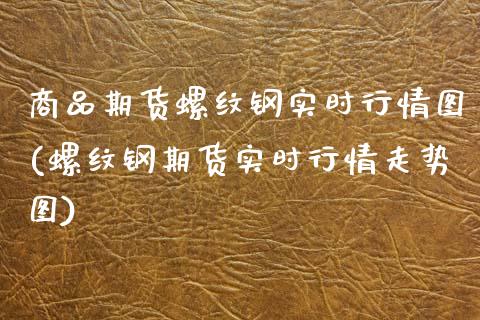 商品期货螺纹钢实时行情图
(螺纹钢期货实时行情走势
图)